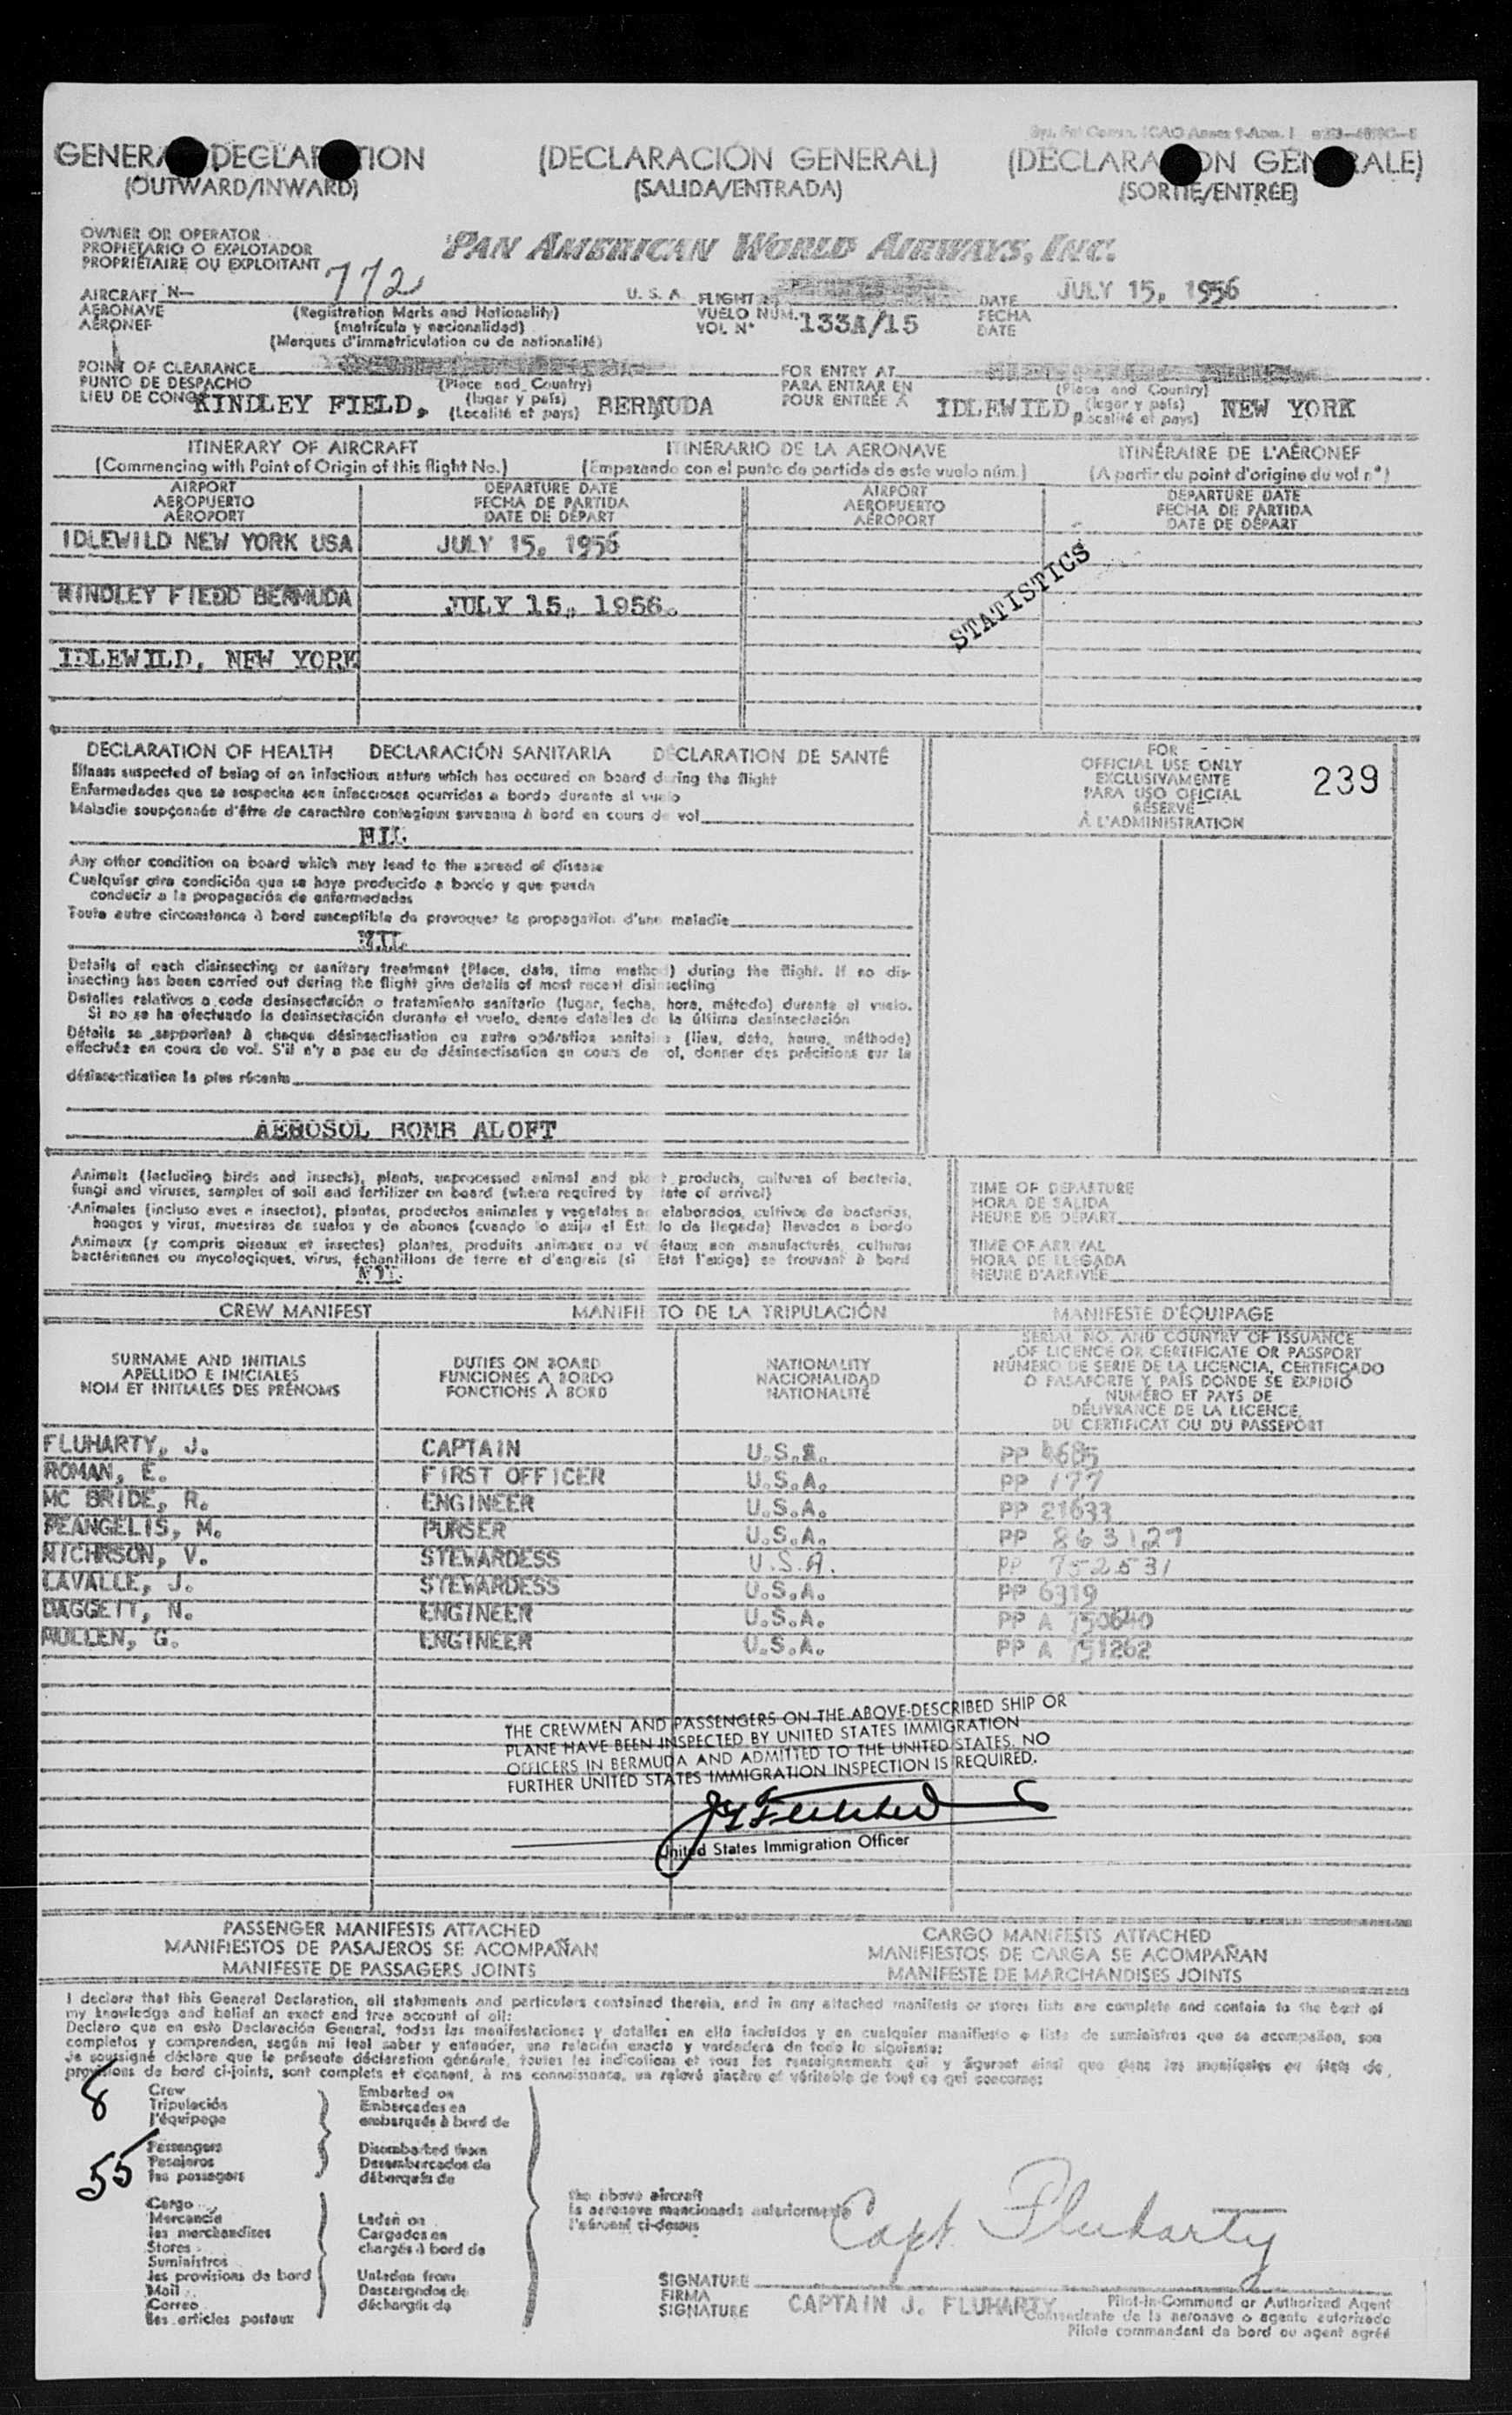 GENERAL DECLARATION (DECLARACIÓN GENERAL) (DECLARATION GENERALE)
(OUTWARD/INWARD) (SALIDA/ENTRADA) (SORTIE/ENTRÉE)
OWNER OR OPERATOR
PROPIETARIO O EXPLOTADOR
PROPRIÉTAIRE OU EXPLOITANT
PAN AMERICAN WORLD AIRWAYS, INC.
AIRCRAFT N— 772 U. S. A. FLIGHT DATE JULY 15, 1956
AERONAVE (Registration Marks and Nationality) VUELO NÚM. 133A/15 FECHA
AÉRONEF (matrícula y nacionalidad) VOL N° DATE
(Marques d'immatriculation ou de nationalité)
POINT OF CLEARANCE FOR ENTRY AT
PUNTO DE DESPACHO (Place and Country) PARA ENTRAR EN (Place and Country)
LIEU DE KINDLEY FIELD, (lugar y país) BERMUDA POUR ENTRÉE À IDLEWILD, (lugar y país) NEW YORK
(Localité et pays) (Localité et pays)
ITINERARY OF AIRCRAFT ITINERARIO DE LA AERONAVE ITINÉRAIRE DE L'AÉRONEF
(Commencing with Point of Origin of this flight No.) (Empezando con el punto de partida de este vuelo núm.) (A partir du point d'origine du vol n°)
AIRPORT DEPARTURE DATE AIRPORT DEPARTURE DATE
AEROPUERTO FECHA DE PARTIDA AEROPUERTO FECHA DE PARTIDA
AÉROPORT DATE DE DÉPART AÉROPORT DATE DE DÉPART
IDLEWILD NEW YORK USA JULY 15, 1956
KINDLEY FIEDD BERMUDA JULY 15, 1956.
STATISTICS
IDLEWILD, NEW YORK
DECLARATION OF HEALTH DECLARACIÓN SANITARIA DÉCLARATION DE SANTÉ
Illness suspected of being of an infectious nature which has occured on board during the flight
Enfermedades que se sospecha son infecciosas ocurridas a bordo durante el vuelo
Maladie soupçonnée d'être de caractère contagieux survenue à bord en cours de vol
NIL
FOR
OFFICIAL USE ONLY
EXCLUSIVAMENTE
PARA USO OFICIAL
RÉSERVÉ
À L'ADMINISTRATION
239
Any other condition on board which may lead to the spread of disease
Cualquier otra condición que se haya producido a bordo y que pueda
conducir a la propagación de enfermedades
Toute autre circonstance à bord susceptible de provoquer la propagation d'une maladie
NIL
Details of each disinsecting or sanitary treatment (Place, date, time method) during the flight. If no dis-
insecting has been carried out during the flight give details of most recent disinsecting
Detalles relativos a cada desinsectación o tratamiento sanitario (lugar, fecha, hora, método) durante el vuelo.
Si no se ha efectuado la desinsectación durante el vuelo, dense detalles de la última desinsectación
Détails se rapportant à chaque désinsectisation ou autre opération sanitaire (lieu, date, heure, méthode)
effectuée en cours de vol. S'il n'y a pas eu de désinsectisation en cours de vol, donner des précisions sur la
désinsectication la plus récente
AEROSOL BOMB ALOFT
Animals (including birds and insects), plants, unprocessed animal and plant products, cultures of bacteria,
fungi and viruses, samples of soil and fertilizer on board (where required by state of arrival)
Animales (incluso aves e insectos), plantas, productos animales y vegetales no elaborados, cultivos de bacterias,
hongos y virus, muestras de suelos y de abonos (cuando lo exija el Estado de llegada) llevados a bordo
Animaux (y compris oiseaux et insectes) plantes, produits animaux ou végétaux non manufacturés, cultures
bactériennes ou mycologiques, virus, échantillons de terre et d'engrais (si Etat l'exige) se trouvant à bord
NIL
TIME OF DEPARTURE
HORA DE SALIDA
HEURE DE DÉPART
TIME OF ARRIVAL
HORA DE LLEGADA
HEURE D'ARRIVÉE
CREW MANIFEST MANIFIESTO DE LA TRIPULACIÓN MANIFESTE D'ÉQUIPAGE
SURNAME AND INITIALS
APELLIDO E INICIALES
NOM ET INITIALES DES PRÉNOMS
DUTIES ON BOARD
FUNCIONES A BORDO
FONCTIONS À BORD
NATIONALITY
NACIONALIDAD
NATIONALITÉ
SERIAL NO. AND COUNTRY OF ISSUANCE
OF LICENCE OR CERTIFICATE OR PASSPORT
NÚMERO DE SERIE DE LA LICENCIA, CERTIFICADO
O PASAPORTE Y PAÍS DONDE SE EXPIDIÓ
NUMÉRO ET PAYS DE
DÉLIVRANCE DE LA LICENCE,
DU CERTIFICAT OU DU PASSEPORT
FLUHARTY, J. CAPTAIN U.S.A. PP 4685
ROMAN, E. FIRST OFFICER U.S.A. PP 177
MC BRIDE, R. ENGINEER U.S.A. PP 21633
DEANGELIS, M. PURSER U.S.A. PP 863127
V. STEWARDESS U.S.A. PP 752531
LAVALLE, J. STEWARDESS U.S.A. PP 6319
DAGGETT, N. ENGINEER U.S.A. PP A 750640
MULLEN, G. ENGINEER U.S.A. PP A 751262
THE CREWMEN AND PASSENGERS ON THE ABOVE-DESCRIBED SHIP OR
PLANE HAVE BEEN INSPECTED BY UNITED STATES IMMIGRATION
OFFICERS IN BERMUDA AND ADMITTED TO THE UNITED STATES. NO
FURTHER UNITED STATES IMMIGRATION INSPECTION IS REQUIRED.
United States Immigration Officer
PASSENGER MANIFESTS ATTACHED CARGO MANIFESTS ATTACHED
MANIFIESTOS DE PASAJEROS SE ACOMPAÑAN MANIFIESTOS DE CARGA SE ACOMPAÑAN
MANIFESTE DE PASSAGERS JOINTS MANIFESTE DE MARCHANDISES JOINTS
I declare that this General Declaration, all statements and particulars contained therein, and in any attached manifests or stores lists are complete and contain to the best of
my knowledge and belief an exact and true account of all:
Declaro que en esta Declaración General, todas las manifestaciones y detalles en ella incluídos y en cualquier manifiesto o lista de suministros que se acompañen, son
completos y comprenden, según mi leal saber y entender, una relación exacta y verdadera de todo lo siguiente:
Je soussigné déclare que la présente déclaration générale, toutes les indications et tous les renseignements qui y figurent ainsi que dans les manifestes ou états de
provisions de bord ci-joints, sont complets et donnent, à ma connaissance, un relevé sincère et véritable de tout ce qui concerne:
8
Crew
Tripulación
l'équipage
Embarked on
Embarcados en
embarqués à bord de
55
Passengers
Pasajeros
les passagers
Disembarked from
Desembarcados de
débarqués de
Cargo
Mercancía
les marchandises
Stores
Suministros
les provisions de bord
Mail
Correo
les articles postaux
Laden on
Cargados en
chargés à bord de
Unladen from
Descargados de
déchargés de
the above aircraft
la aeronave mencionada anteriormente
l'aéronef ci-dessus
Capt. Fluharty
SIGNATURE
FIRMA
SIGNATURE
CAPTAIN J. FLUHARTY
Pilot-in-Command or Authorized Agent
Comandante de la aeronave o agente autorizado
Pilote commandant de bord ou agent agréé